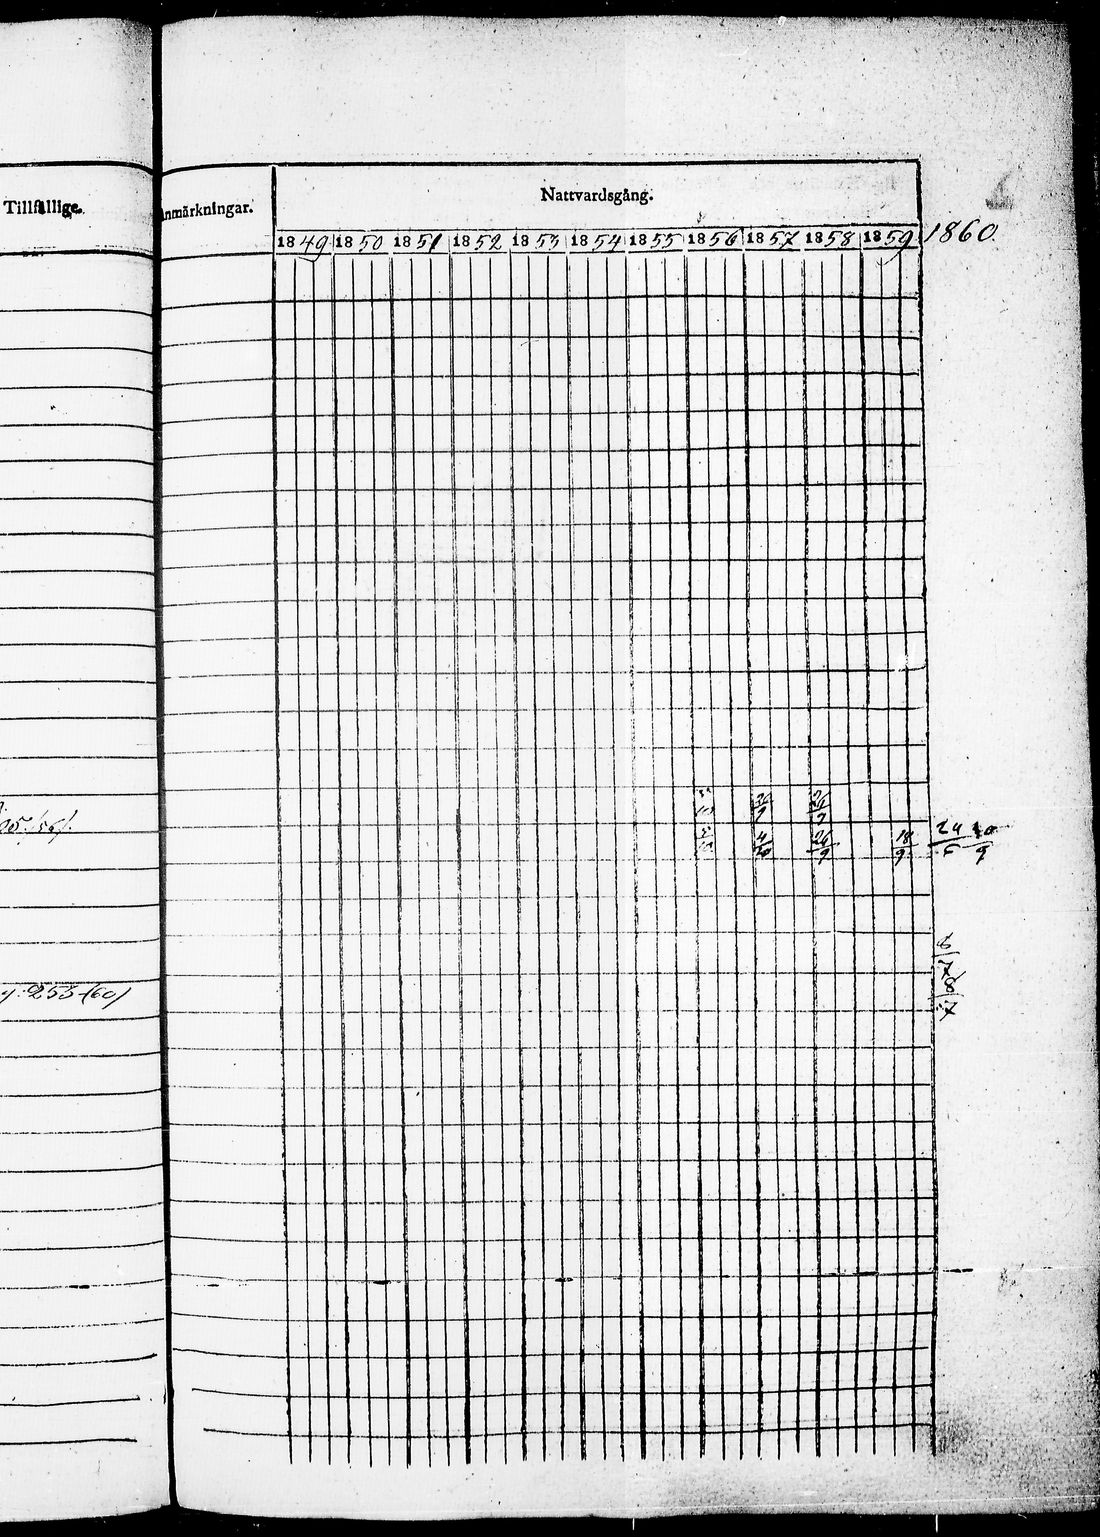 Tillfällige.
nmärkningar.
Nattvardsgång.
1849 1850 1851 1852 1853 1854 1855 1856 1857 1858 1859 1860.
26/9 26/9
5/10 4/10 26/9 18/9 24/6 9
8/7
253 (60)
8/7